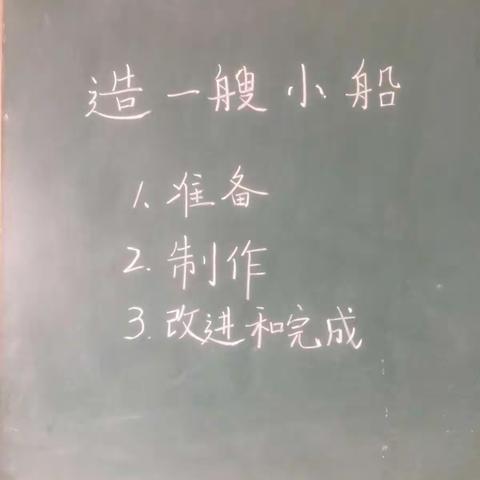 造一艘小船
1. 准备
2. 制作
3. 改进和完成